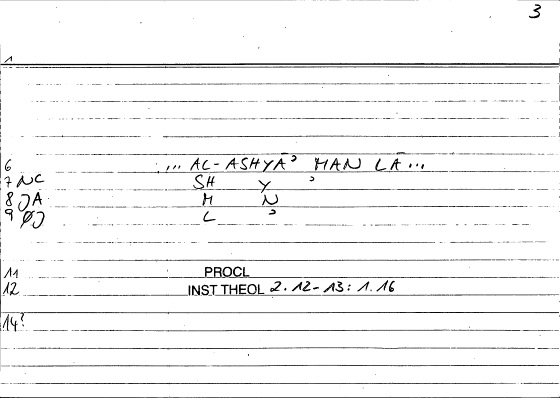 3
1
6 ... AL-ASHYĀʾ MAN LĀ...
7 NC SH Y ʾ
8 JA M N
9 ØJ L ʾ
11 PROCL
12 INST THEOL 2.12-13: 1.16
14?